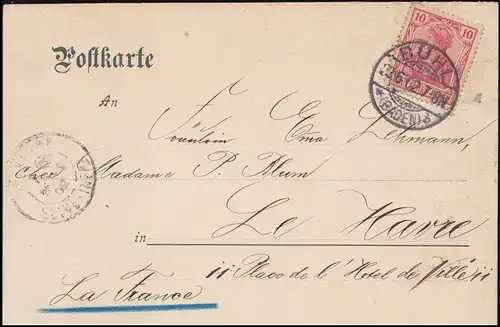 10 10
BÜHL
* (BADEN) *
Postkarte
An
Fräulein Ema Lehmann,
Chez Madame P. Blum
in Le Havre
11 Place de l'Hotel de Ville 11
La France